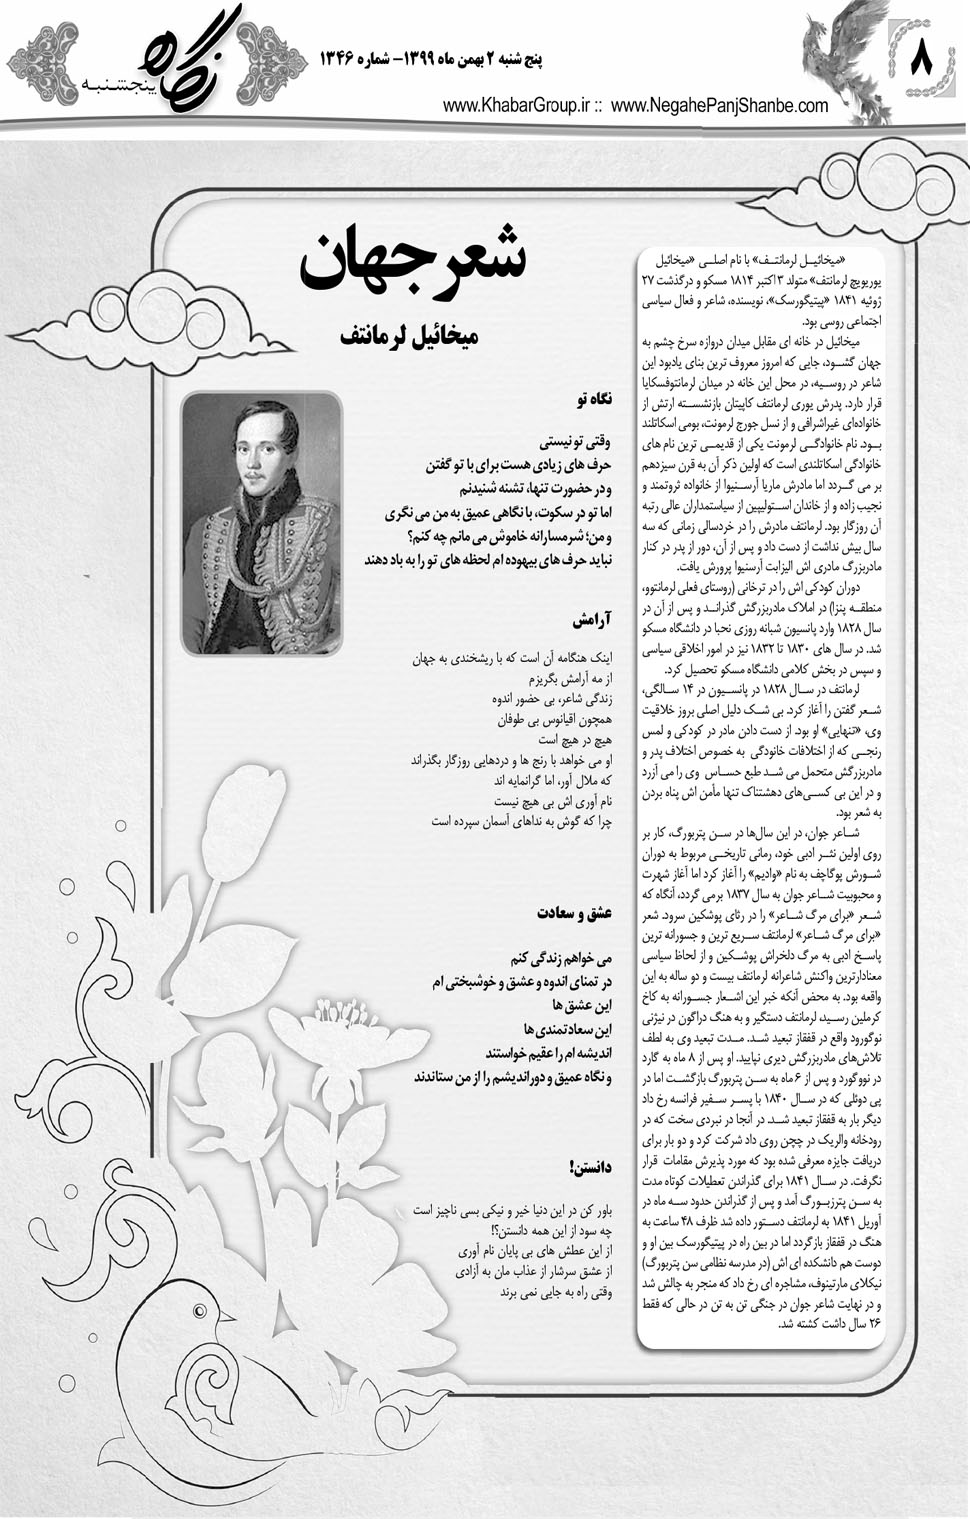 ۸
پنج شنبه ۲ بهمن ماه ۱۳۹۹- شماره ۱۳۴۶
نگاه
پنجشنبه
www.KhabarGroup.ir :: www.NegahePanjShanbe.com
شعر جهان
میخائیل لرمانتف
«میخائیل لرمانتف» با نام اصلی «میخائیل
یوریویچ لرمانتف» متولد ۳ اکتبر ۱۸۱۴ مسکو و درگذشت ۲۷
ژوئیه ۱۸۴۱ «پیتیگورسک»، نویسنده، شاعر و فعال سیاسی
اجتماعی روسی بود.
میخائیل در خانه ای مقابل میدان دروازه سرخ چشم به
جهان گشود، جایی که امروز معروف ترین بنای یادبود این
شاعر در روسیه، در محل این خانه در میدان لرمانتوفسکایا
قرار دارد. پدرش یوری لرمانتف کاپیتان بازنشسته ارتش از
خانواده‌ای غیراشرافی و از نسل جورج لرمونت، بومی اسکاتلند
بود. نام خانوادگی لرمونت یکی از قدیمی ترین نام های
خانوادگی اسکاتلندی است که اولین ذکر آن به قرن سیزدهم
بر می گردد اما مادرش ماریا آرسنیوا از خانواده ثروتمند و
نجیب زاده و از خاندان استولیپین از سیاستمداران عالی رتبه
آن روزگار بود. لرمانتف مادرش را در خردسالی زمانی که سه
سال بیش نداشت از دست داد و پس از آن، دور از پدر در کنار
مادربزرگ مادری اش الیزابت آرسنیوا پرورش یافت.
دوران کودکی اش را در ترخانی (روستای فعلی لرمانتوو،
منطقه پنزا) در املاک مادربزرگش گذراند و پس از آن در
سال ۱۸۲۸ وارد پانسیون شبانه روزی نجبا در دانشگاه مسکو
شد. در سال های ۱۸۳۰ تا ۱۸۳۲ نیز در امور اخلاقی سیاسی
و سپس در بخش کلامی دانشگاه مسکو تحصیل کرد.
لرمانتف در سال ۱۸۲۸ در پانسیون در ۱۴ سالگی،
شعر گفتن را آغاز کرد. بی شک دلیل اصلی بروز خلاقیت
وی، «تنهایی» او بود. از دست دادن مادر در کودکی و لمس
رنجی که از اختلافات خانودگی به خصوص اختلاف پدر و
مادربزرگش متحمل می شد طبع حساس وی را می آزرد
و در این بی کسی‌های دهشتناک تنها مأمن اش پناه بردن
به شعر بود.
شاعر جوان، در این سال‌ها در سن پتربورگ، کار بر
روی اولین نثر ادبی خود، رمانی تاریخی مربوط به دوران
شورش پوگاچف به نام «وادیم» را آغاز کرد اما آغاز شهرت
و محبوبیت شاعر جوان به سال ۱۸۳۷ برمی گردد، آنگاه که
شعر «برای مرگ شاعر» را در رثای پوشکین سرود. شعر
«برای مرگ شاعر» لرمانتف سریع ترین و جسورانه ترین
پاسخ ادبی به مرگ دلخراش پوشکین و از لحاظ سیاسی
معنادارترین واکنش شاعرانه لرمانتف بیست و دو ساله به این
واقعه بود. به محض آنکه خبر این اشعار جسورانه به کاخ
کرملین رسید، لرمانتف دستگیر و به هنگ دراگون در نیژنی
نوگورود واقع در قفقاز تبعید شد. مدت تبعید وی به لطف
تلاش‌های مادربزرگش دیری نپایید. او پس از ۸ ماه به گارد
در نووگورد و پس از ۶ ماه به سن پتربورگ بازگشت اما در
پی دوئلی که در سال ۱۸۴۰ با پسر سفیر فرانسه رخ داد
دیگر بار به قفقاز تبعید شد. در آنجا در نبردی سخت که در
رودخانه والریک در چچن روی داد شرکت کرد و دو بار برای
دریافت جایزه معرفی شده بود که مورد پذیرش مقامات قرار
نگرفت. در سال ۱۸۴۱ برای گذراندن تعطیلات کوتاه مدت
به سن پترزبورگ آمد و پس از گذراندن حدود سه ماه در
آوریل ۱۸۴۱ به لرمانتف دستور داده شد ظرف ۴۸ ساعت به
هنگ در قفقاز بازگردد اما در بین راه در پیتیگورسک بین او و
دوست هم دانشکده ای اش (در مدرسه نظامی سن پتربورگ)
نیکلای مارتینوف، مشاجره ای رخ داد که منجر به چالش شد
و در نهایت شاعر جوان در جنگی تن به تن در حالی که فقط
۲۶ سال داشت کشته شد.
نگاه تو
وقتی تو نیستی
حرف های زیادی هست برای با تو گفتن
و در حضورت تنها، تشنه شنیدنم
اما تو در سکوت، با نگاهی عمیق به من می نگری
و من؛ شرمسارانه خاموش می مانم چه کنم؟
نباید حرف های بیهوده ام لحظه های تو را به باد دهند
آرامش
اینک هنگامه آن است که با ریشخندی به جهان
از مه آرامش بگریزم
زندگی شاعر، بی حضور اندوه
همچون اقیانوس بی طوفان
هیچ در هیچ است
او می خواهد با رنج ها و دردهایی روزگار بگذراند
که ملال آور، اما گرانمایه اند
نام آوری اش بی هیچ نیست
چرا که گوش به نداهای آسمان سپرده است
عشق و سعادت
می خواهم زندگی کنم
در تمنای اندوه و عشق و خوشبختی ام
این عشق ها
این سعادتمندی ها
اندیشه ام را عقیم خواستند
و نگاه عمیق و دوراندیشم را از من ستاندند
دانستن!
باور کن در این دنیا خیر و نیکی بسی ناچیز است
چه سود از این همه دانستن؟!
از این عطش های بی پایان نام آوری
از عشق سرشار از عذاب مان به آزادی
وقتی راه به جایی نمی برند